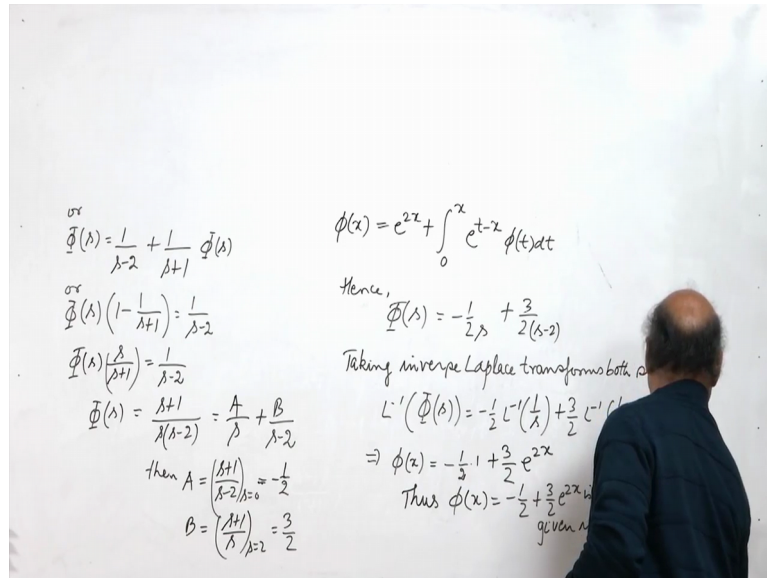 or
Φ(s) = 1/(s-2) + 1/(s+1) Φ(s)
or
Φ(s)(1 - 1/(s+1)) = 1/(s-2)
Φ(s)(s/(s+1)) = 1/(s-2)
Φ(s) = (s+1)/(s(s-2)) = A/s + B/(s-2)
then A = ((s+1)/(s-2))_{s=0} = -1/2
B = ((s+1)/s)_{s=2} = 3/2
ϕ(x) = e^{2x} + ∫_0^x e^{t-x} ϕ(t)dt
Hence,
Φ(s) = -1/(2s) + 3/(2(s-2))
Taking inverse Laplace transforms both
L^{-1}(Φ(s)) = -1/2 L^{-1}(1/s) + 3/2 L^{-1}(
⇒ ϕ(x) = -1/2 · 1 + 3/2 e^{2x}
Thus ϕ(x) = -1/2 + 3/2 e^{2x}
given